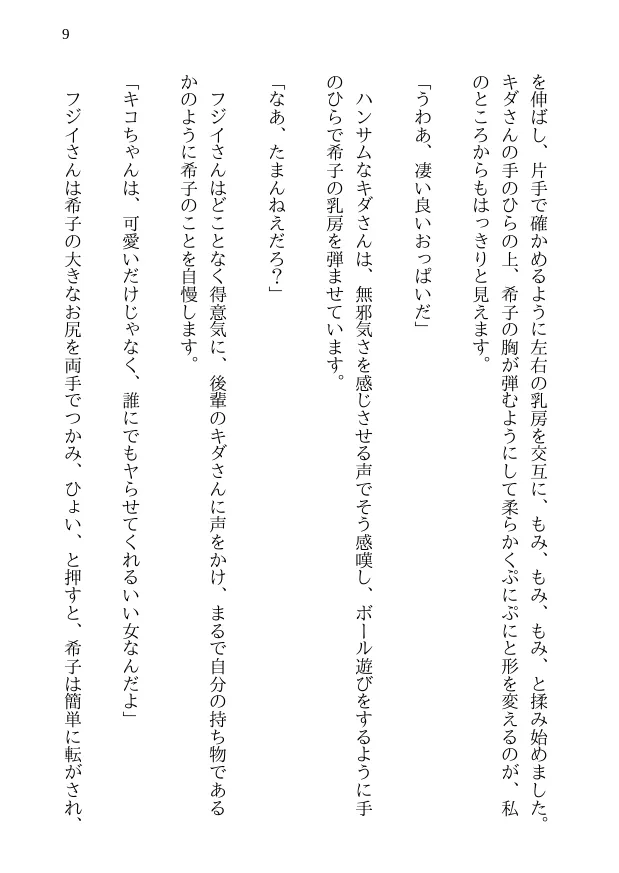 9
を伸ばし、片手で確かめるように左右の乳房を交互に、もみ、もみ、もみ、と揉み始めました。
キダさんの手のひらの上、希子の胸が弾むようにして柔らかくぷにぷにと形を変えるのが、私
のところからもはっきりと見えます。
「うわあ、凄い良いおっぱいだ」
ハンサムなキダさんは、無邪気さを感じさせる声でそう感嘆し、ボール遊びをするように手
のひらで希子の乳房を弾ませています。
「なあ、たまんねえだろ？」
フジイさんはどことなく得意気に、後輩のキダさんに声をかけ、まるで自分の持ち物である
かのように希子のことを自慢します。
「キコちゃんは、可愛いだけじゃなく、誰にでもヤらせてくれるいい女なんだよ」
フジイさんは希子の大きなお尻を両手でつかみ、ひょい、と押すと、希子は簡単に転がされ、